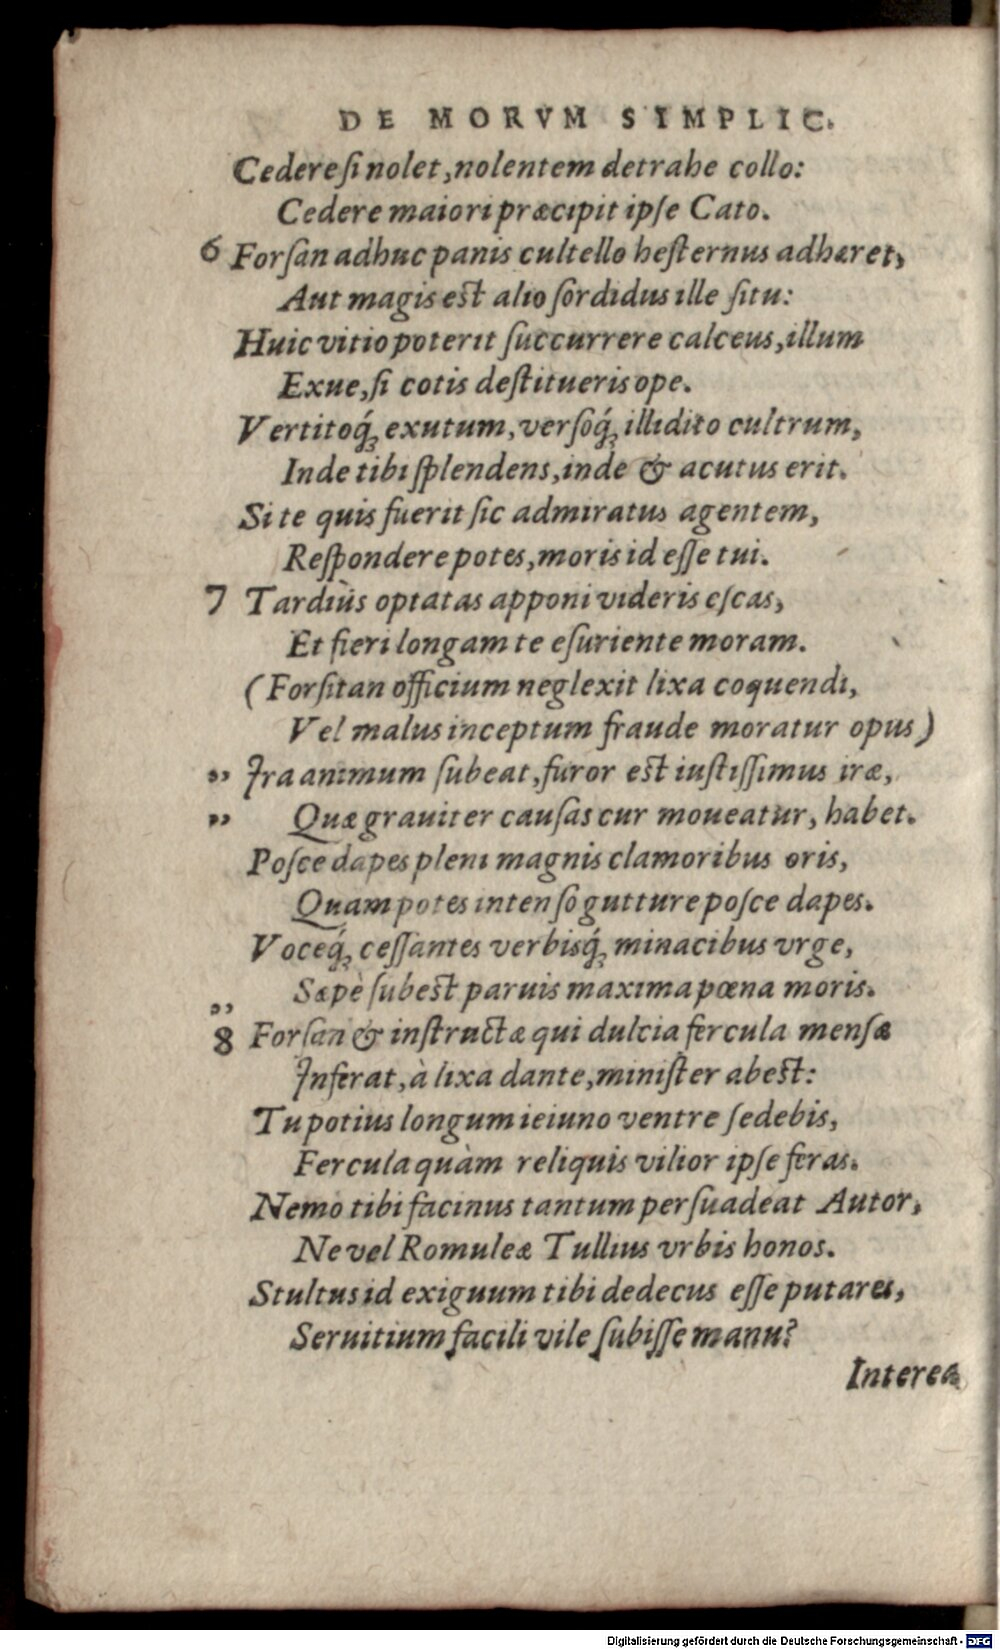 DE MORVM SIMPLIC.
Cedere ſi nolet, nolentem detrahe collo:
Cedere maiori præcipit ipſe Cato.
6 Forſan adhuc panis cultello heſternus adhæret,
Aut magis est alio ſordidus ille ſitu:
Huic vitio poterit ſuccurrere calceus, illum
Exue, ſi cotis deſtitueris ope.
Vertitoq́; exutum, verſoq́; illidito cultrum,
Inde tibi ſplendens, inde & acutus erit.
Si te quis fuerit ſic admiratus agentem,
Reſpondere potes, moris id eſſe tui.
7 Tardiùs optatas apponi videris eſcas,
Et fieri longam te eſuriente moram.
(Forſitan officium neglexit lixa coquendi,
Vel malus inceptum fraude moratur opus)
„ Ira animum ſubeat, furor est iuſtiſſimus iræ,
„ Quæ grauiter cauſas cur moueatur, habet.
Poſce dapes pleni magnis clamoribus oris,
Quam potes intenſo gutture poſce dapes.
Voceq́; ceſſantes verbisq́; minacibus vrge,
„ Sæpè ſubest paruis maxima pœna moris.
8 Forſan & inſtructæ qui dulcia fercula menſæ
Inferat, à lixa dante, miniſter abest:
Tu potius longum ieiuno ventre ſedebis,
Fercula quàm reliquis vilior ipſe feras.
Nemo tibi facinus tantum perſuadeat Autor,
Ne vel Romuleæ Tullius vrbis honos.
Stultus id exiguum tibi dedecus eſſe putares,
Seruitium facili vile ſubiſſe manu?
Interea
Digitalisierung gefördert durch die Deutsche Forschungsgemeinschaft - DFG